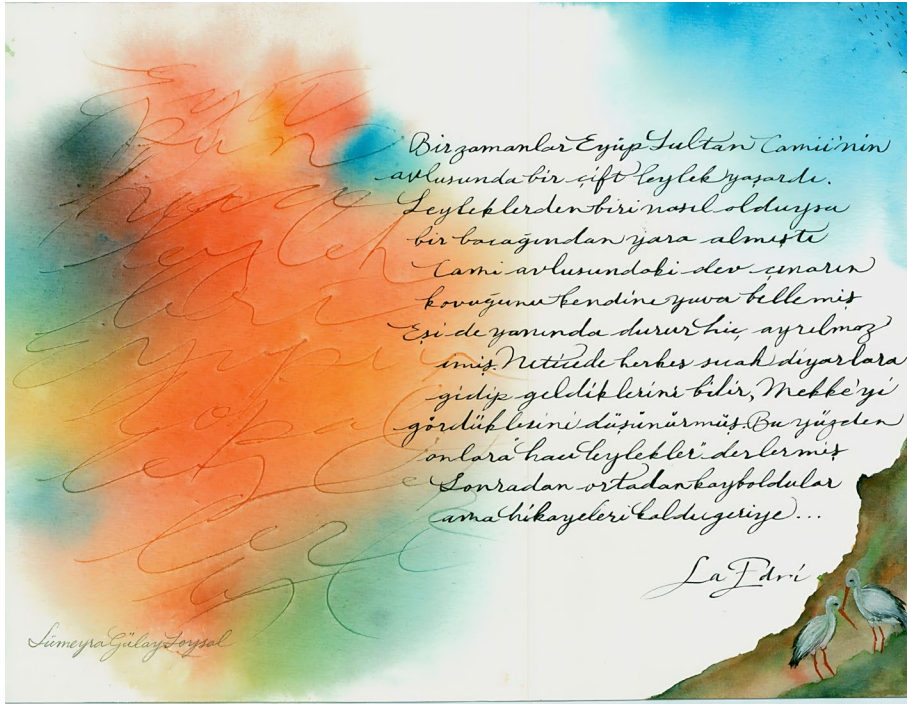 Bir zamanlar Eyüp Sultan Camii'nin
avlusunda bir çift leylek yaşardı.
Leyleklerden biri nasıl olduysa
bir bacağından yara almıştı
Cami avlusundaki dev çınarın
kovuğunu kendine yuva bellemiş
Eşi de yanında durur hiç ayrılmaz
imiş. Neticede herkes sıcak diyarlara
gidip geldiklerini bilir, Mekke'yi
gördüklerini düşünürmüş. Bu yüzden
onlara "hacı leylekler" derlermiş
Sonradan ortadan kayboldular
ama hikayeleri kaldı geriye...
La Edri
Sümeyra Gülay Soysal